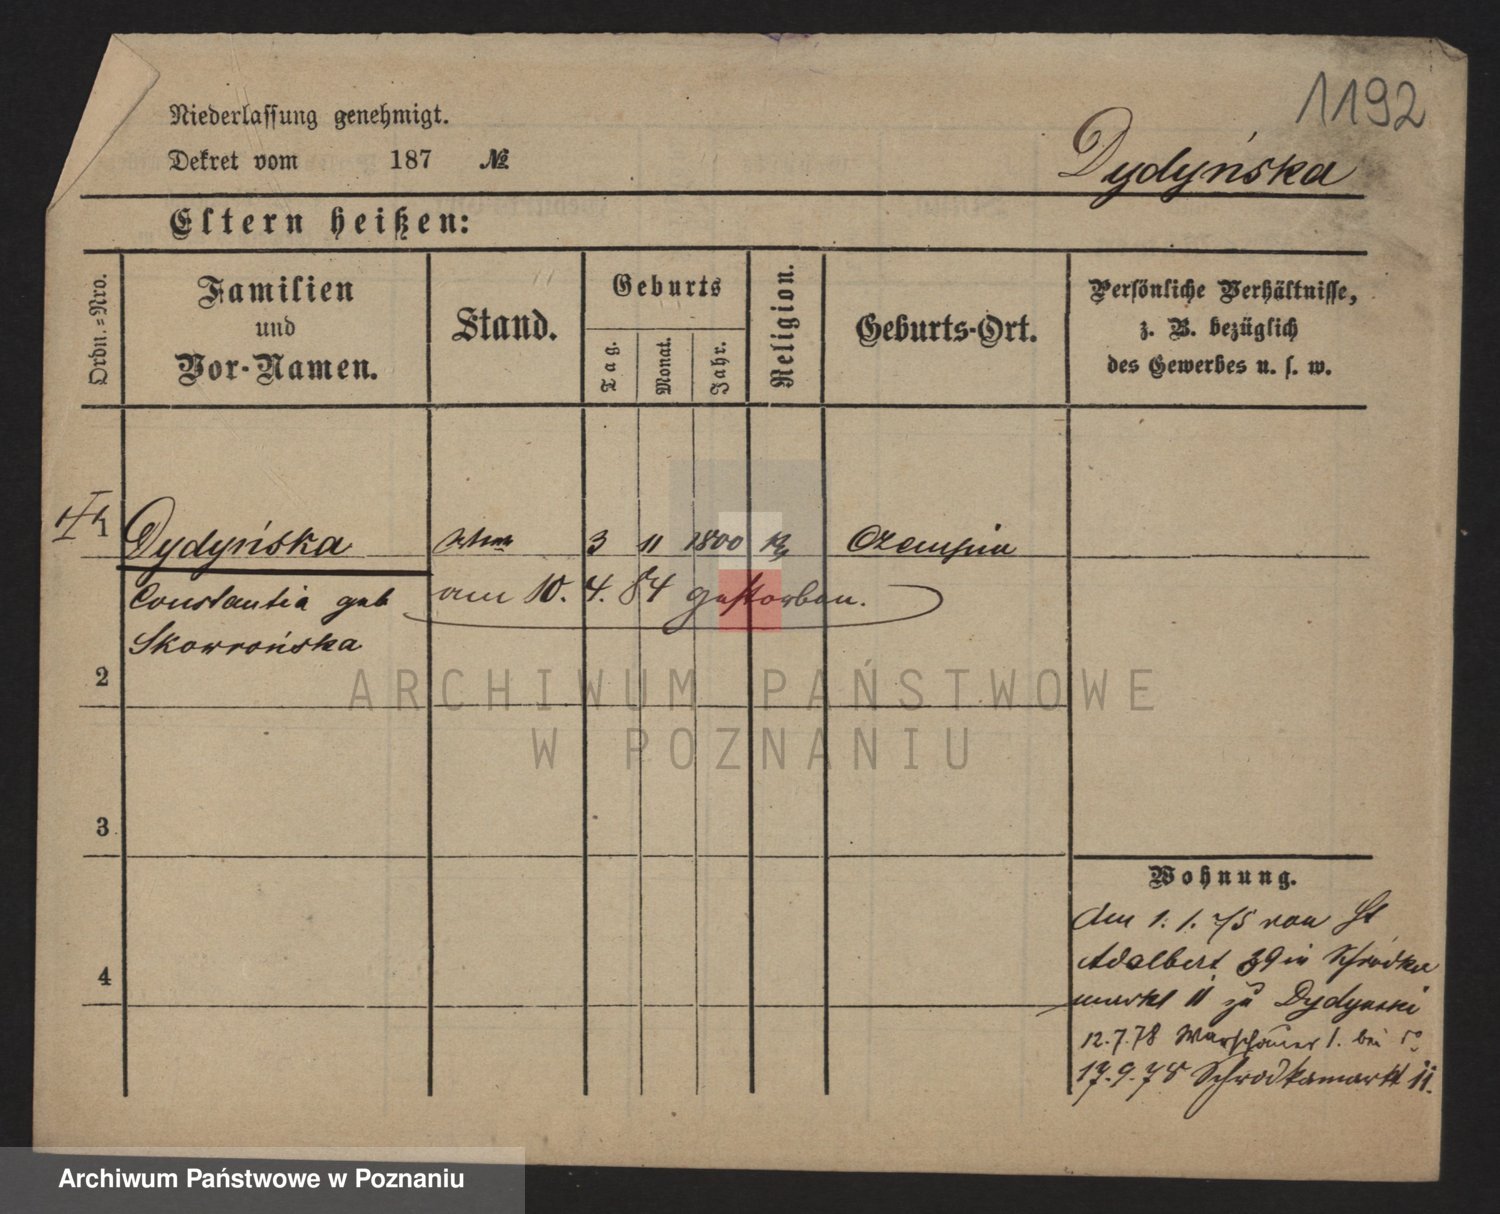 1192
Niederlassung genehmigt.
Dekret vom 187 №
Dydyńska
Eltern heißen:
Ordn.=Nro.
Familien
und
Vor-Namen.
Stand.
Geburts
Tag.
Monat.
Jahr.
Religion.
Geburts-Ort.
Persönliche Verhältnisse,
z. B. bezüglich
des Gewerbes u. s. w.
1 Dydyńska 3 11 1800
Constantia geb
Skowrońska
am 10. 4. 84 gestorben.
2
3
4
Wohnung.
Am 1. 1. 75 von St
Adalbert 39 in Schrodka
markt 11 zu Dydynski
12.7.78 Warschauer 1. bei
17.9.78 Schrodkamarkt 11.
ARCHIWUM PAŃSTWOWE
W POZNANIU
Archiwum Państwowe w Poznaniu